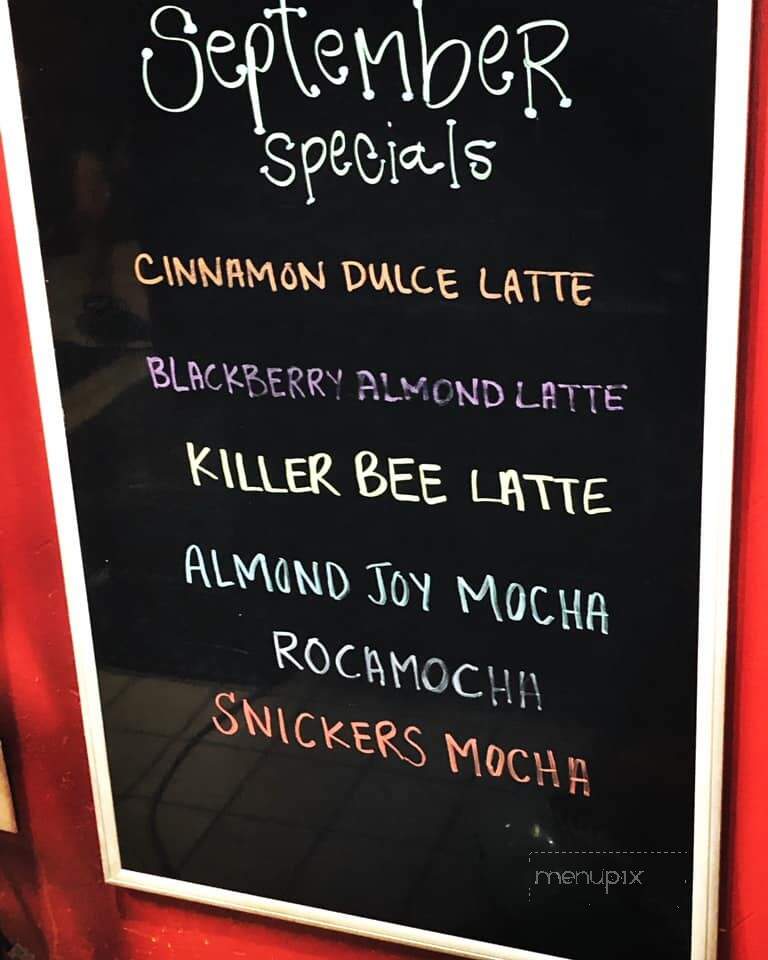 September
specials
CINNAMON DULCE LATTE
BLACKBERRY ALMOND LATTE
KILLER BEE LATTE
ALMOND JOY MOCHA
ROCAMOCHA
SNICKERS MOCHA
menupix